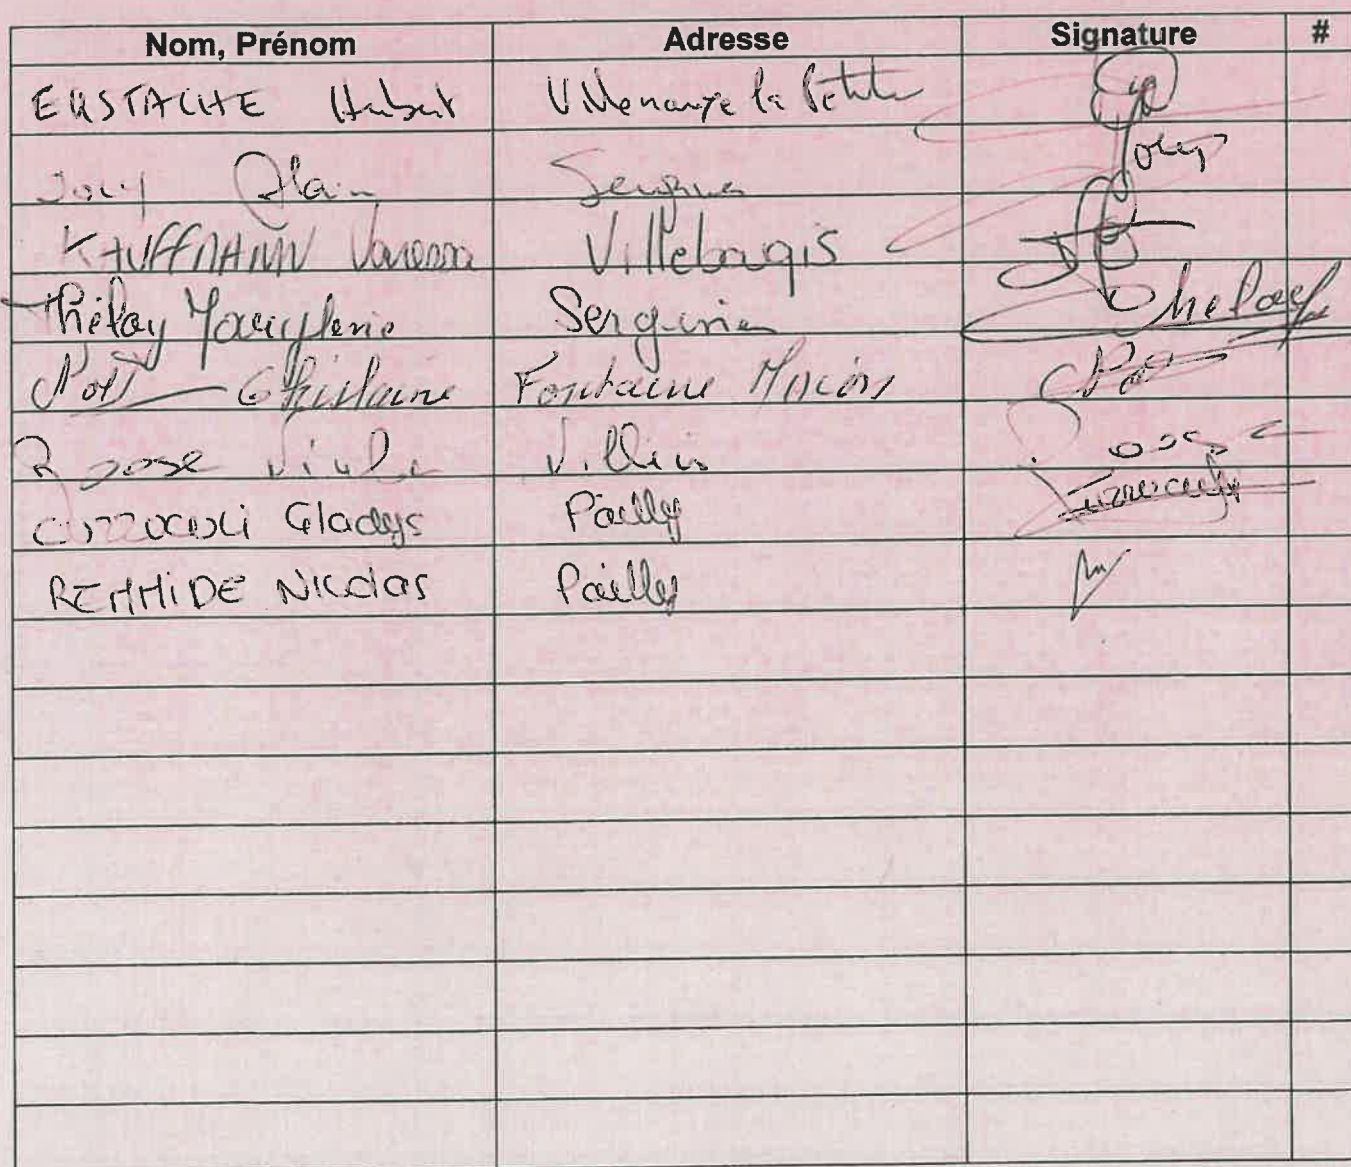 Nom, Prénom Adresse Signature #
EUSTACHE Hubert Villenauxe la Petite
Jouy Alain Sergines Jouy
KAUFFMANN Vanessa Villebougis
Thélay Maryflenie Sergines Thelay
Noll Ghislaine Fontaine Mâcon
Roose Villiers Roose
Gladys Pailly
REMMIDE Nicolas Pailly